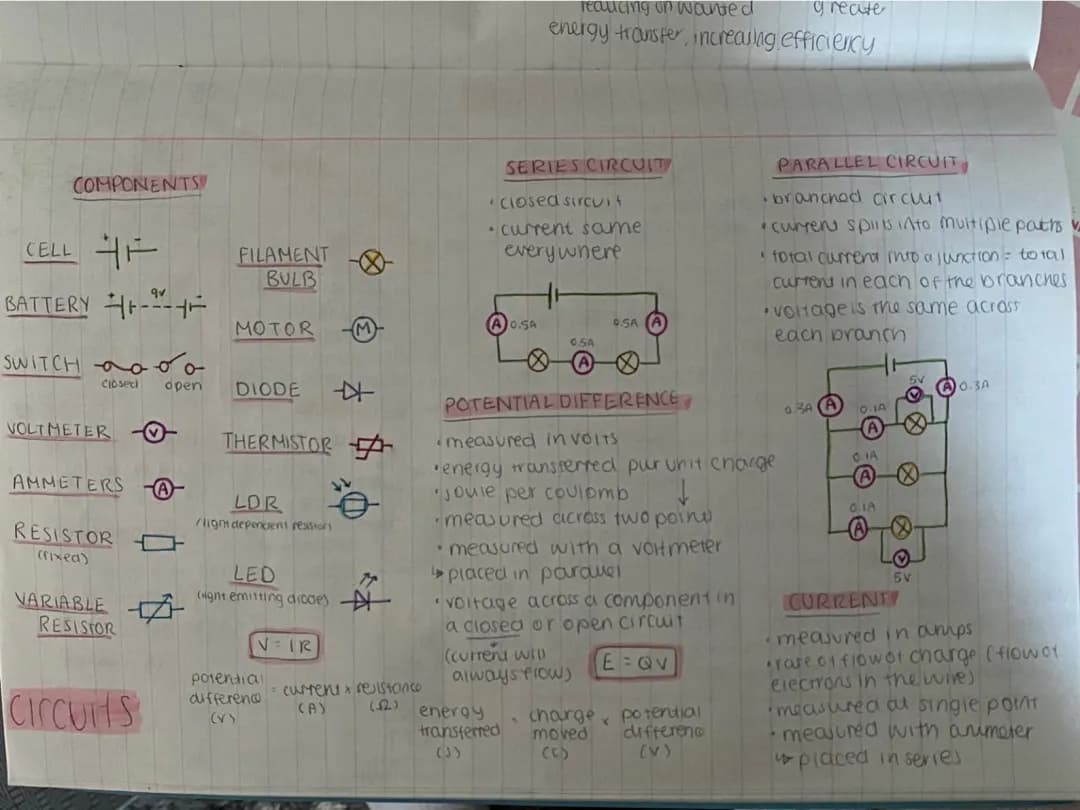 reducing unwanted
greater
energy transfer, increasing efficiency
COMPONENTS
CELL
BATTERY
9V
SWITCH
closed
open
VOLTMETER
V
AMMETERS
A
RESISTOR
(fixed)
VARIABLE
RESISTOR
CIRCUITS
FILAMENT
BULB
MOTOR
M
DIODE
THERMISTOR
LDR
(light dependent resistor)
LED
(light emitting diode)
V = IR
potential
difference = current x resistance
(V) (A) (Ω)
SERIES CIRCUIT
• closed sircuit
• current same
everywhere
A 0.5A
0.5A A
0.5A
A
POTENTIAL DIFFERENCE
• measured in volts
• energy transferred pur unit charge
• joule per coulomb ↓
• measured across two points
• measured with a voltmeter
↳ placed in parallel
• voltage across a component in
a closed or open circuit
(current will
always flow)
E = QV
energy
transferred
(J)
=
charge
moved
(C)
x
potential
difference
(V)
PARALLEL CIRCUIT
• branched circuit
• current splits into multiple paths
• total current into a junction = total
current in each of the branches
• voltage is the same across
each branch
0.3A A
5V
V
A 0.3A
0.1A
A
0.1A
A
0.1A
A
V
5V
CURRENT
• measured in amps
• rate of flow of charge (flow of
electrons in the wires)
• measured at single point
• measured with ammeter
↳ placed in series